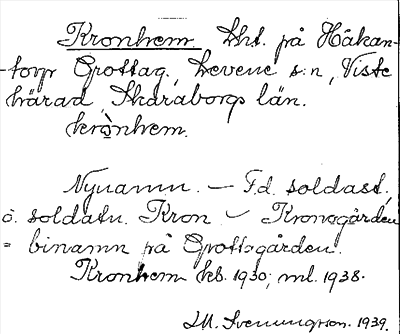 Kronhem lht. på Håkan-
torp Grottag., Levene s:n, Viste
härad, Skaraborgs län.
krònhem.
Nynamn. – F.d. soldatst.,
ö. soldatn. Kron – Kronogården
= binamn på Grottagården.
Kronhem kb. 1930, ml. 1938.
M. Svenungson. 1939.